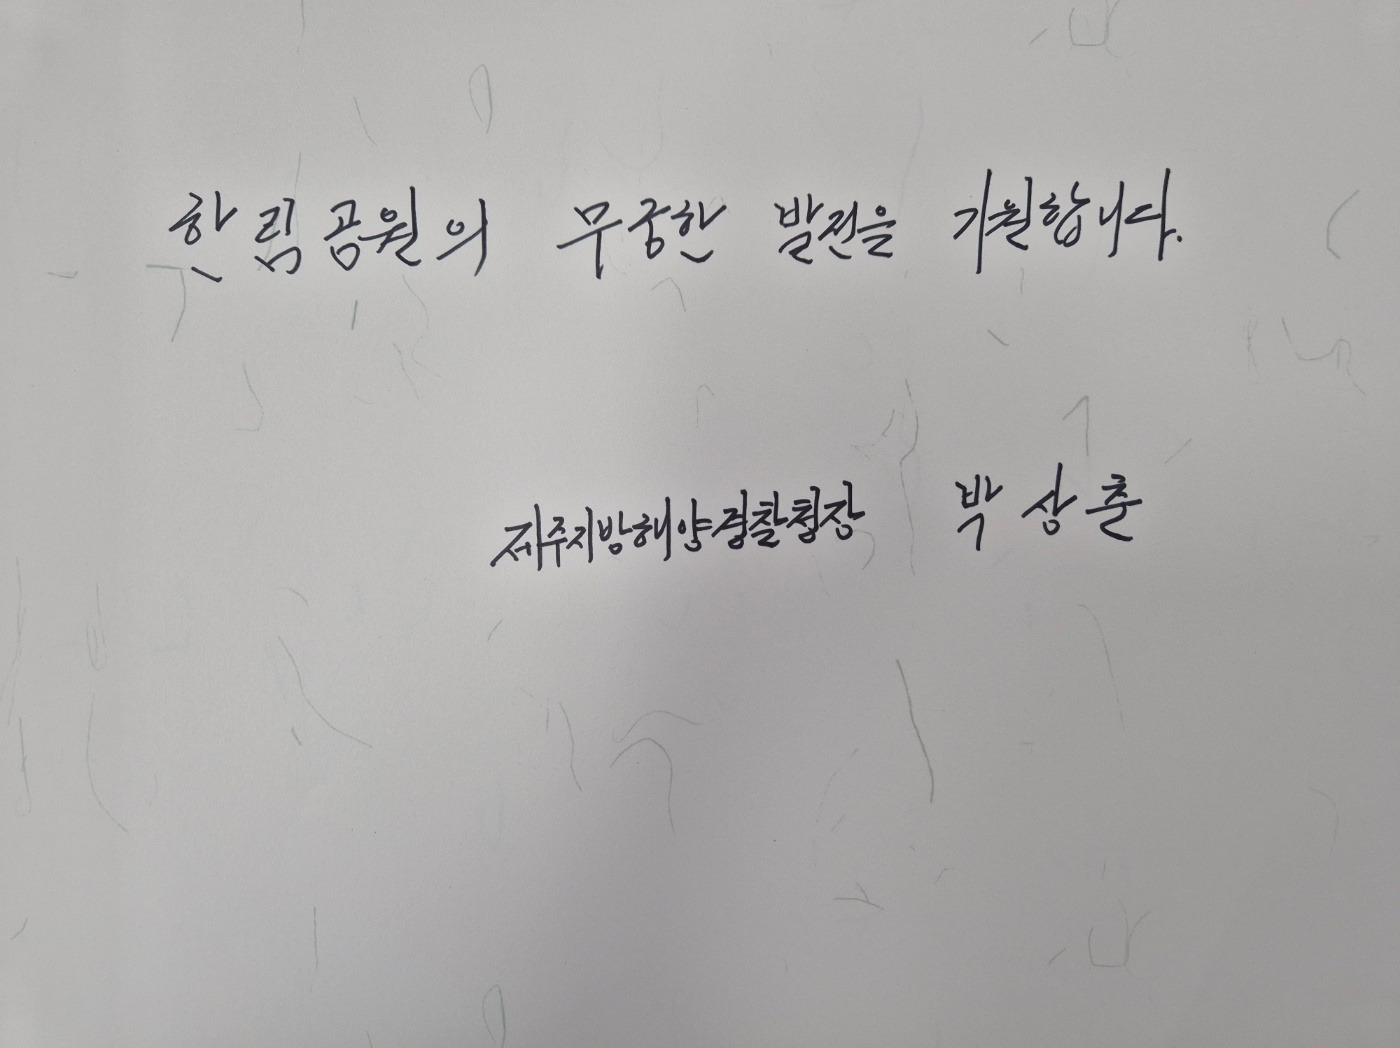 한림공원의 무궁한 발전을 기원합니다.
제주지방해양경찰청장 박상춘